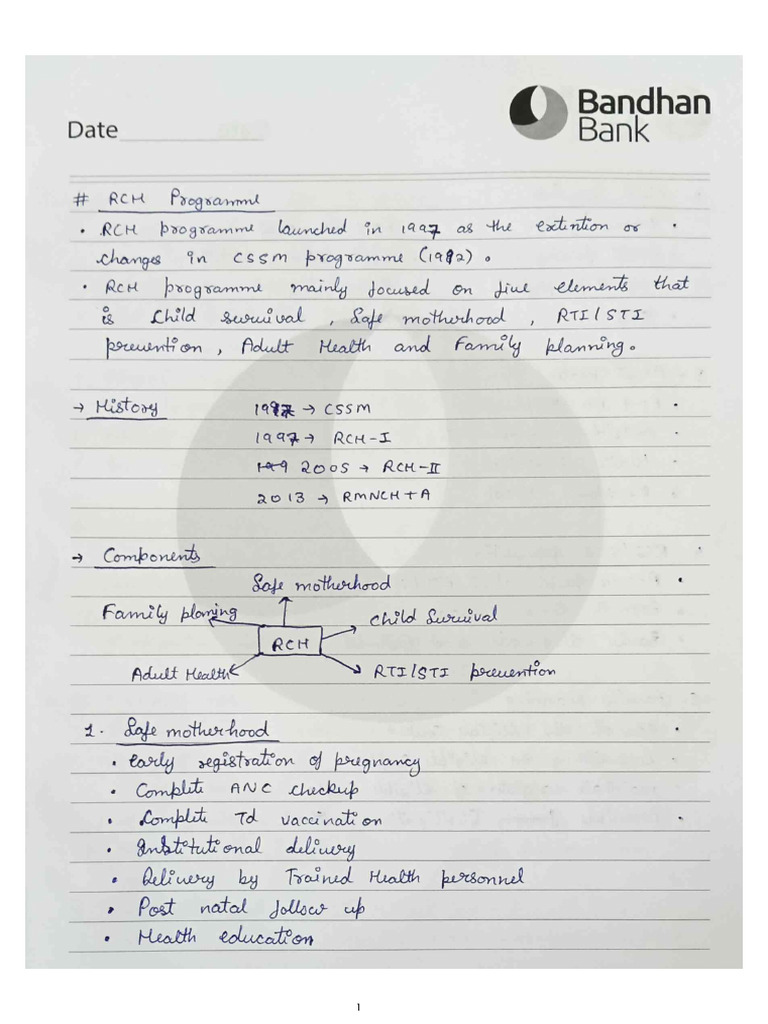 Bandhan
Bank
Date
# RCH Programme
• RCH programme launched in 1997 as the extention or
changes in CSSM programme (1992).
• RCH programme mainly focused on five elements that
is Child survival, Safe motherhood, RTI/STI
prevention, Adult Health and Family planning.
→ History
→ CSSM
1997 → RCH-I
2005 → RCH-II
2013 → RMNCH+A
→ Components
Safe motherhood
Family planing
Child Survival
RCH
Adult Health
RTI/STI prevention
1. Safe motherhood
• early registration of pregnancy
• Complete ANC checkup
• Complete Td vaccination
• Institutional delivery
• Delivery by Trained Health personnel
• Post natal follow up
• Health education
1